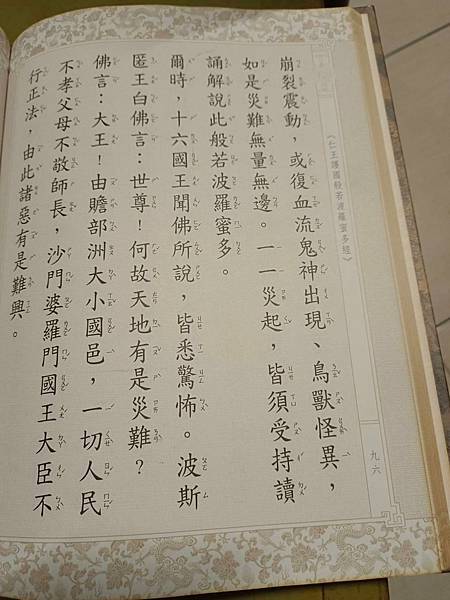 《仁王護國般若波羅蜜多經》
九六
崩裂震動，或復血流鬼神出現、鳥獸怪異，
如是災難無量無邊。一一災起，皆須受持讀
誦解說此般若波羅蜜多。
爾時，十六國王聞佛所說，皆悉驚怖。波斯
匿王白佛言：世尊！何故天地有是災難？
佛言：大王！由贍部洲大小國邑，一切人民
不孝父母不敬師長，沙門婆羅門國王大臣不
行正法，由此諸惡有是難興。